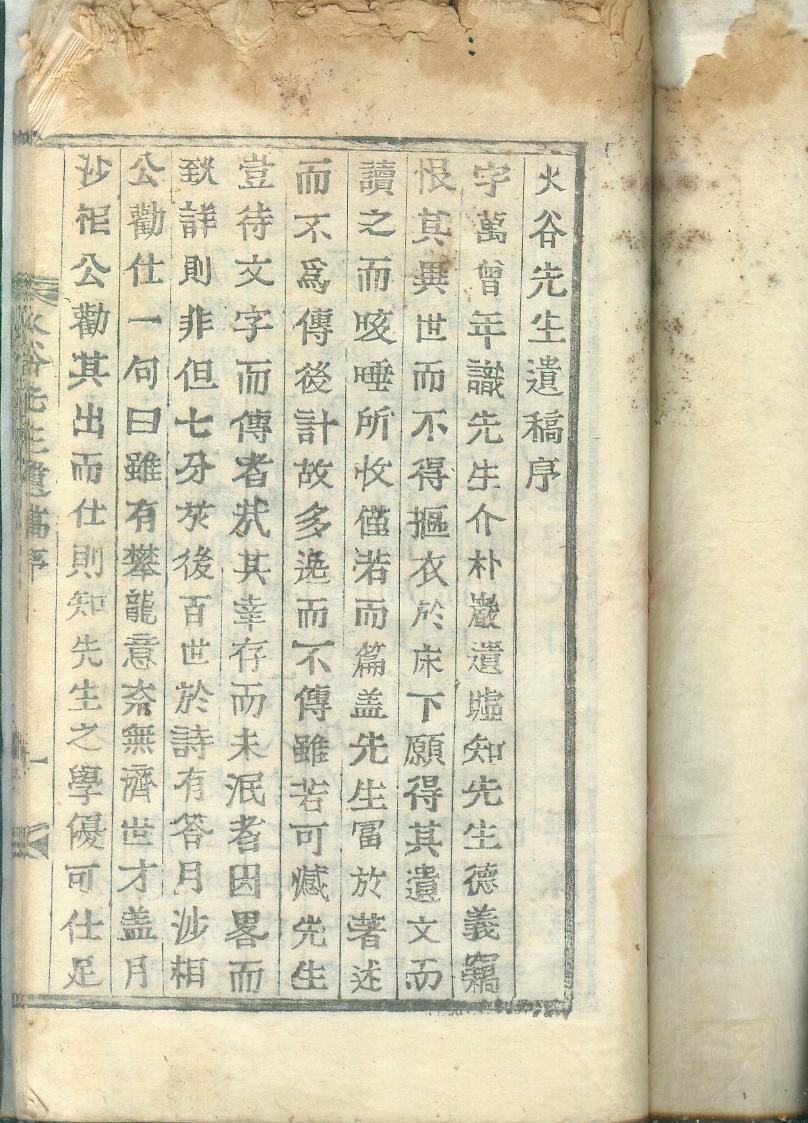 火谷先生遺稿序
字萬曾年識先生介朴巖遺墟知先生德義竊
恨其異世而不得摳衣於床下願得其遺文而
讀之而咳唾所收僅若而篇盖先生富於著述
而不爲傳後計故多逸而不傳雖若可憾先生
豈待文字而傳者㢤其幸存而未泯者因畧而
致詳則非但七分於後百世於詩有答月沙相
公勸仕一句曰雖有攀龍意柰無濟世才盖月
沙相公勸其出而仕則知先生之學優可仕足
火谷先生遺稿序
一